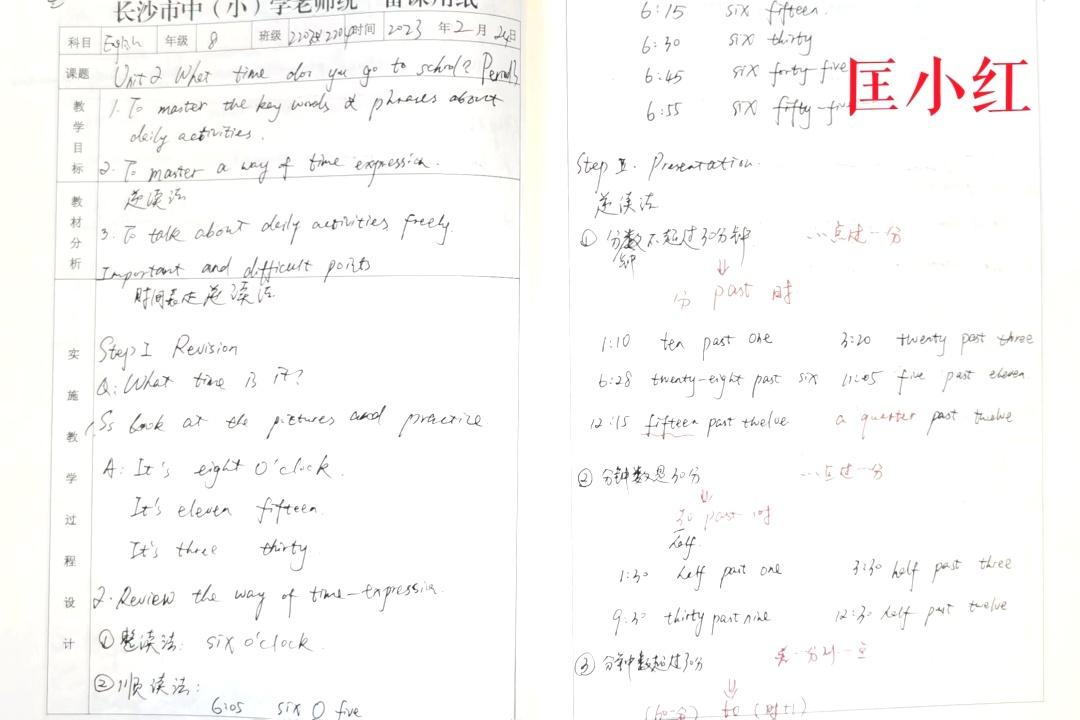 长沙市中(小)学老师统一备课用纸
科目 English 年级 8 班级 时间 2023 年 2 月 24 日
课题 Unit 2 What time do you go to school? Period
教学目标
1. To master the key words & phrases about
daily activities.
2. To master a way of time expression.
逆读法
教材分析
3. To talk about daily activities freely.
Important and difficult points
时间表达逆读法
实施教学过程设计
Step I Revision
Q: What time is it?
Ss look at the pictures and practice
A: It's eight o'clock.
It's eleven fifteen.
It's three thirty.
2. Review the way of time-expression.
① 整读法: six o'clock.
② 顺读法:
6:05 six O five
6:15 six fifteen.
6:30 six thirty
6:45 six forty five
6:55 six fifty-five
匡小红
Step II. Presentation.
逆读法
① 分钟数不超过30分钟 …点过一分
分 past 时
1:10 ten past one 3:20 twenty past three
6:28 twenty-eight past six 11:05 five past eleven.
12:15 fifteen past twelve a quarter past twelve
② 分钟数是30分 …点过一分
30 past 时
half.
1:30 half past one 3:30 half past three
9:30 thirty past nine 12:30 half past twelve
③ 分钟数超过30分 差一分到一点
(60-分) to (时+1)